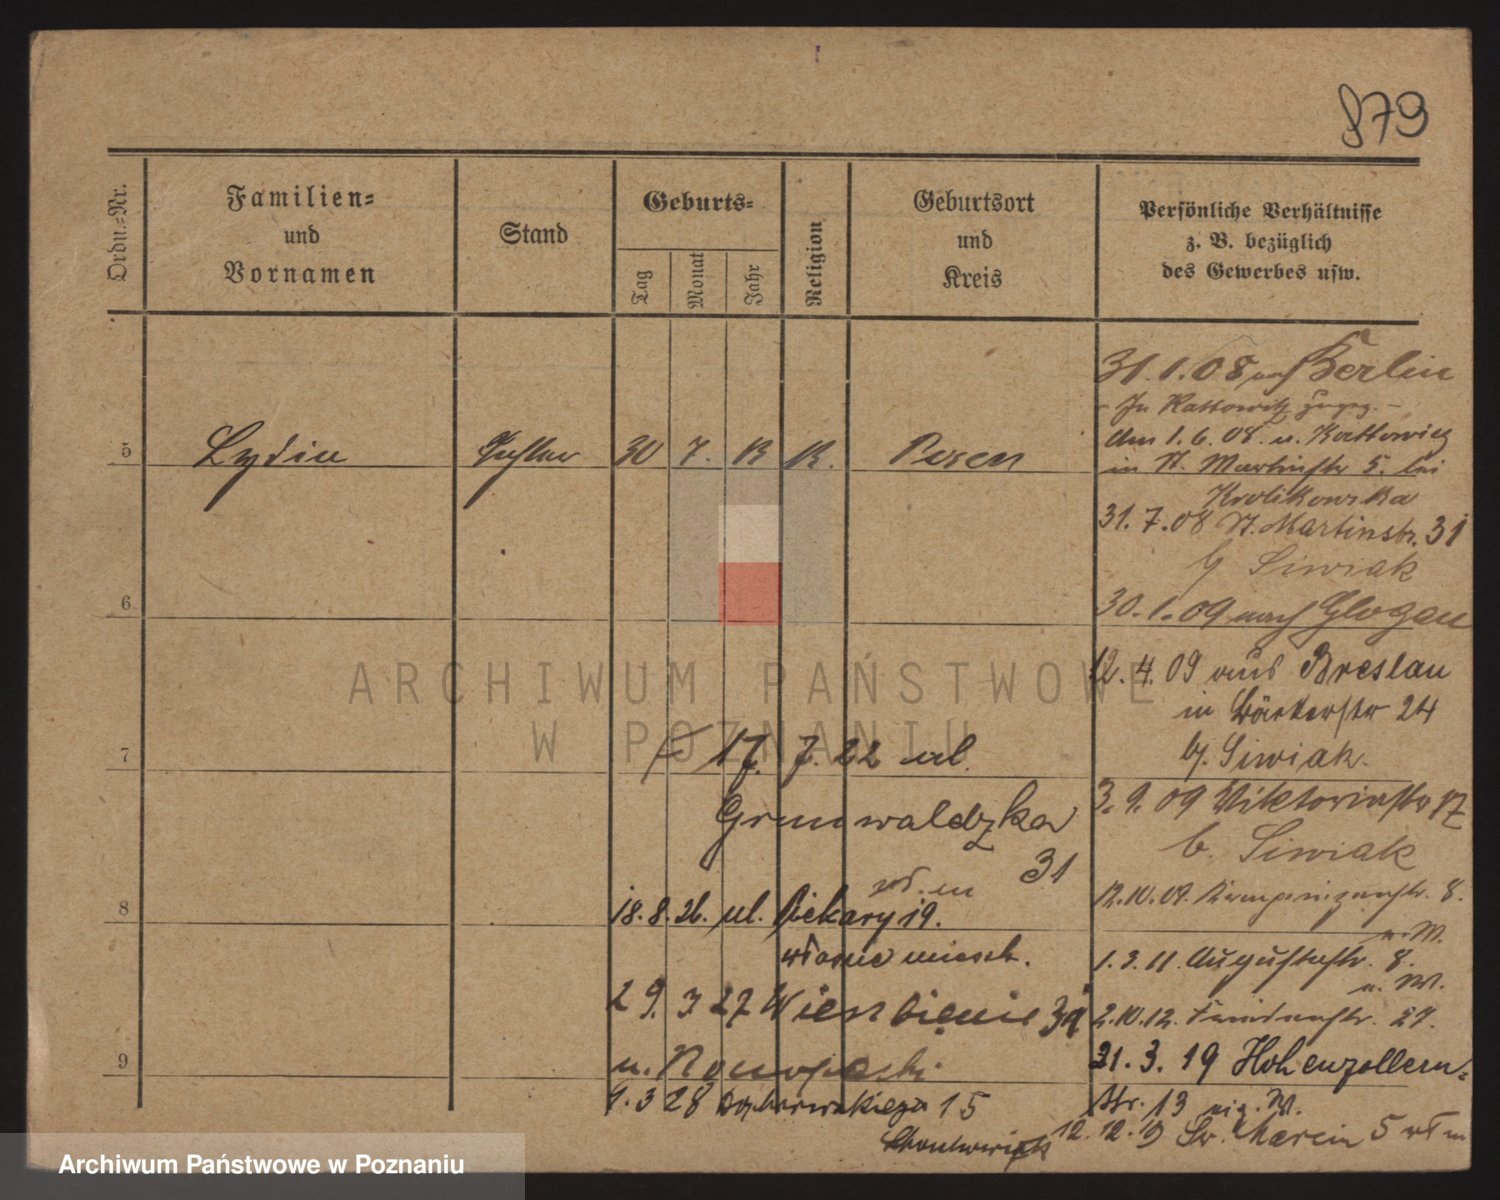 879
Ordn.-Nr.
Familien-
und
Vornamen
Stand
Geburts-
Tag
Monat
Jahr
Religion
Geburtsort
und
Kreis
Persönliche Verhältnisse
z. B. bezüglich
des Gewerbes usw.
5 Lydia Tochter 30 7. 13 K. Posen
6
7
8
9
31.1.08 nach Berlin
In Kattowitz
Am 1.6.08. v. Kattowitz
in St. Martinstr 5. bei
Krolikowska
31.7.08 St. Martinstr. 31
b. Siwiak
30.1.09 nach Glogau
12.4.09 aus Breslau
in Bäckerstr 24
b. Siwiak.
3.9.09 Viktoriastr 17
b. Siwiak
12.10.09. 8.
e. W.
1.3.11. Augustastr. 8.
e. W.
2.10.12. 27.
31.3.19 Hohenzollern-
str. 13 eig. W.
12.12.19 Św. Marcin 5 wł m
17. 7. 22 ul.
Grunwaldzka
31
wł. m
18.8.26. ul. Piekary 19.
własne mieszk.
29. 3 27 Wierzbięcice
u. Nowopolski
1.3 28 15
ARCHIWUM PAŃSTWOWE
W POZNANIU
Archiwum Państwowe w Poznaniu